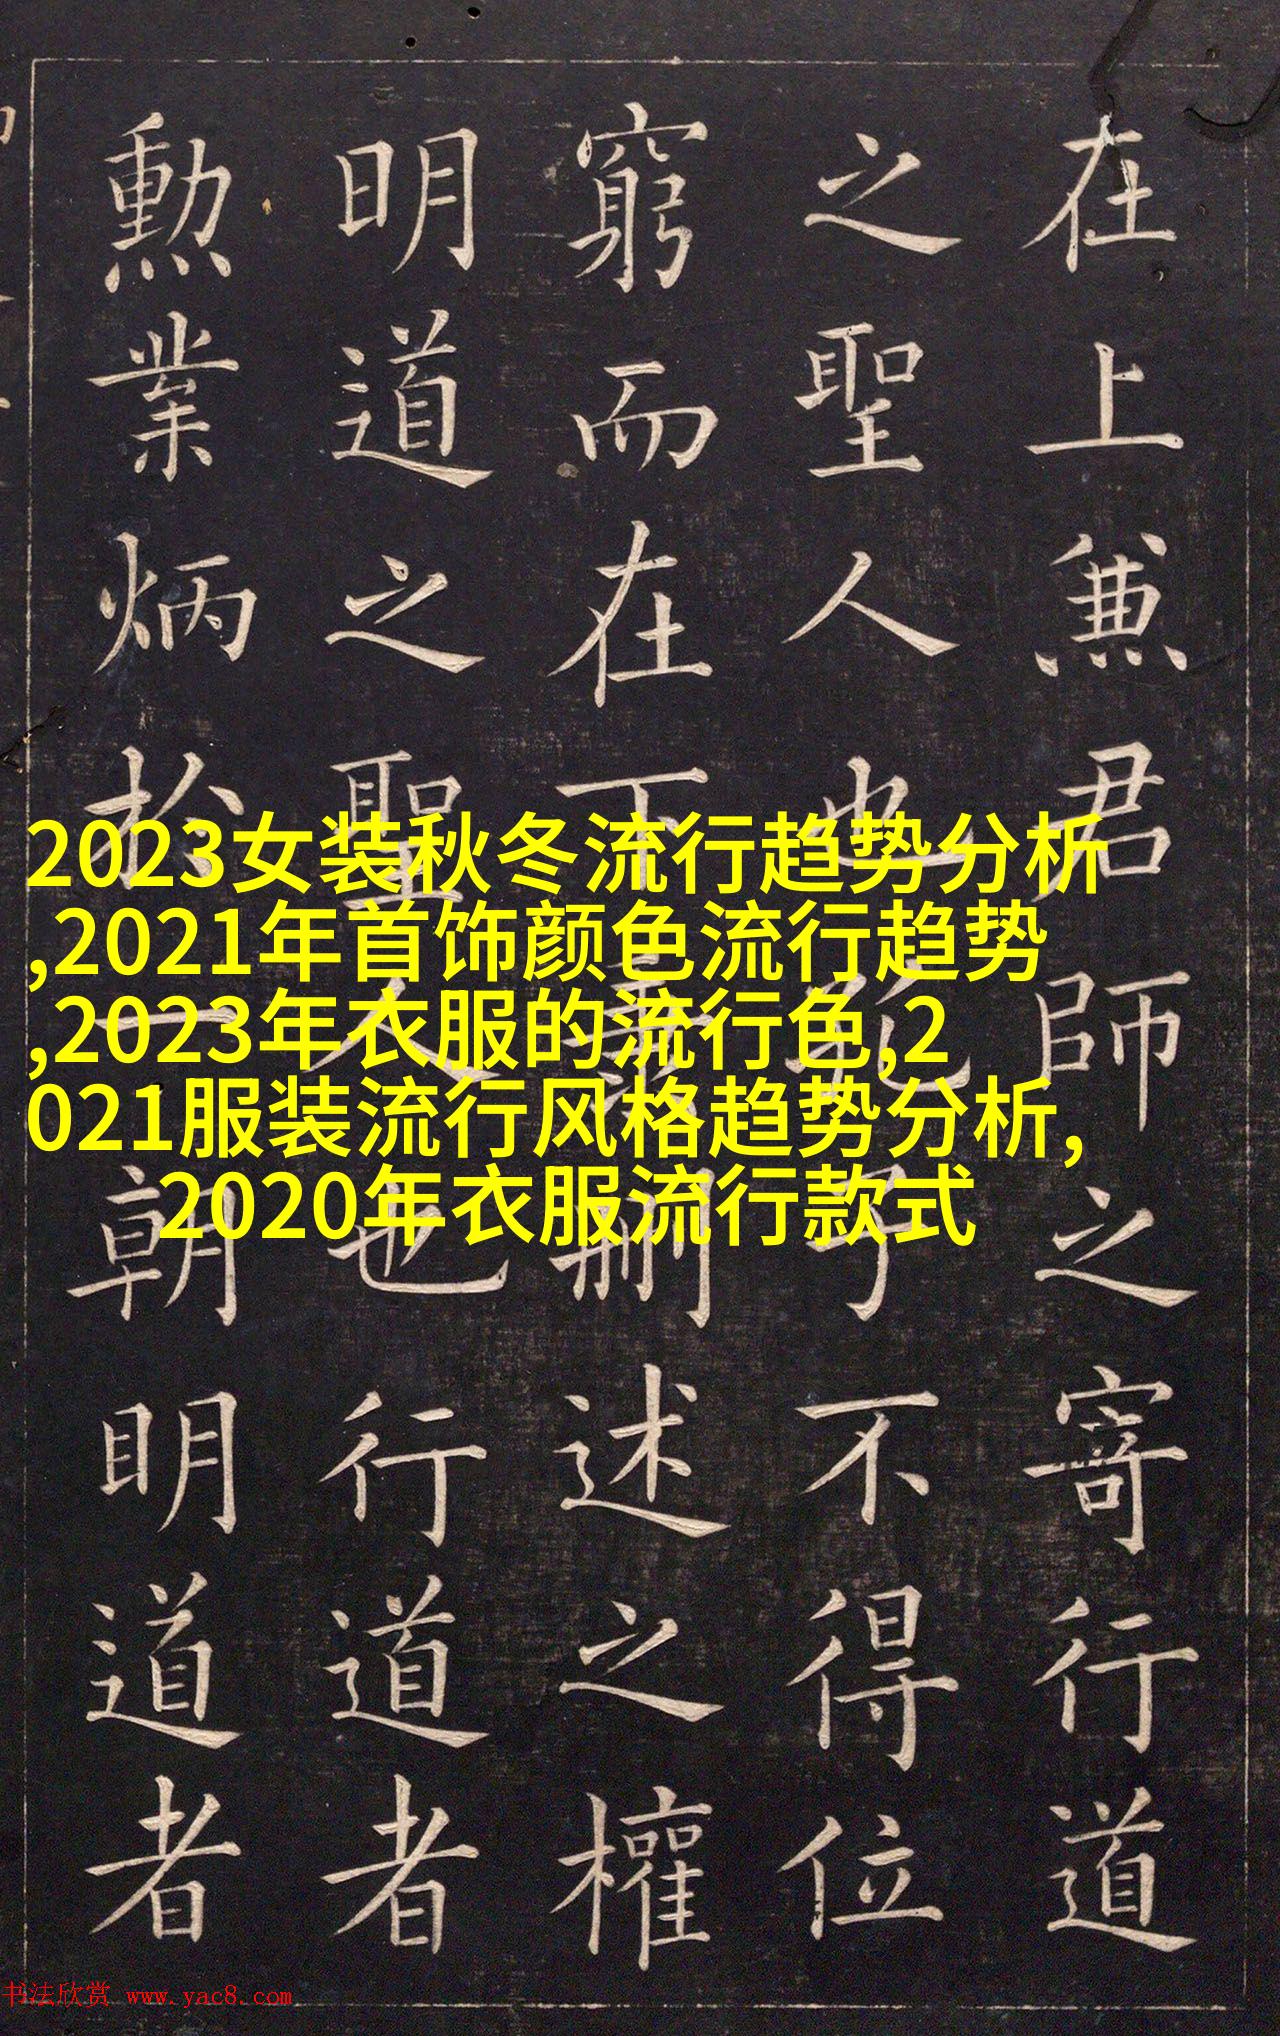 在上兼君師之寄行道
之聖人也孔子不得位
窮而在下兼刪述之權
明道之聖人也行道者
勳業炳於一朝明道者
2023女装秋冬流行趋势分析
,2021年首饰颜色流行趋势
,2023年衣服的流行色,2
021服装流行风格趋势分析,
2020年衣服流行款式
书法欣赏 www.yac8.com